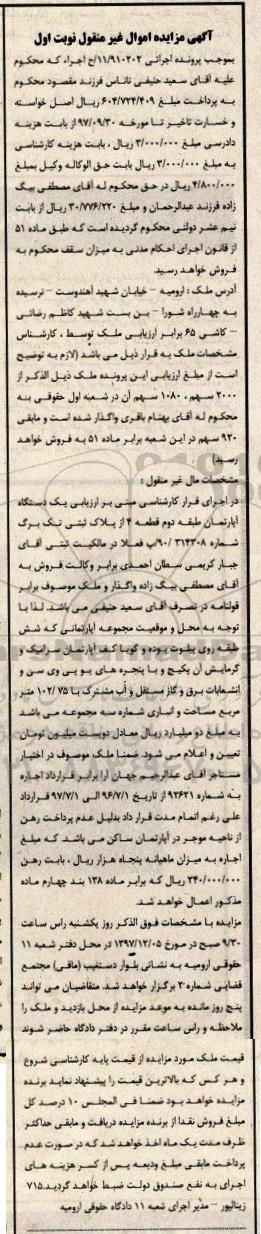 آگهی مزایده اموال غیر منقول نوبت اول
بموجب پرونده اجرائی ۱۱/۹۱۰۲۰۲/ج اجراء که محکوم
علیه آقای سعید حنیفی تاتاس فرزند مقصود محکوم
به پرداخت مبلغ ۶۰۴/۷۲۴/۴۰۹ ریال اصل خواسته
و خسارت تاخیر تا مورخه ۹۷/۰۹/۳۰ از بابت هزینه
دادرسی مبلغ ۳/۰۰۰/۰۰۰ ریال ، بابت هزینه کارشناسی
به مبلغ ۳/۰۰۰/۰۰۰ ریال بابت حق الوکاله وکیل بمبلغ
۴/۸۰۰/۰۰۰ ریال در حق محکوم له آقای مصطفی بیگ
زاده فرزند عبدالرحمان و مبلغ ۳۰/۷۷۶/۲۲۰ ریال از بابت
نیم عشر دولتی محکوم گردیده است که طبق ماده ۵۱
از قانون اجرای احکام مدنی به میزان سقف محکوم به
فروش خواهد رسید.
آدرس ملک : ارومیه – خیابان شهید آهندوست – نرسیده
به چهارراه شورا – بن بست شهید کاظم رضائی
– کاشی ۶۵ برابر ارزیابی ملک توسط ، کارشناس
مشخصات ملک به قرار ذیل می باشد (لازم به توضیح
است از مبلغ ارزیابی این پرونده ملک ذیل الذکر از
۲۰۰۰ سهم ، ۱۰۸۰ سهم آن در شعبه اول حقوقی به
محکوم له آقای بهنام باقری واگذار شده است و مابقی
۹۲۰ سهم در این شعبه برابر ماده ۵۱ به فروش خواهد
رسید)
مشخصات مال غیر منقول :
در اجرای قرار کارشناسی مبنی بر ارزیابی یک دستگاه
آپارتمان طبقه دوم قطعه ۴ از پلاک ثبتی تک برگ
شماره ۳۱۴۳۰۸ /۹۰ب فعلا در مالکیت ثبتی آقای
جبار کریمی سطان احمدی برابر وکالت فروش به
آقای مصطفی بیگ زاده واگذار و ملک موصوف برابر
قولنامه در تصرف آقای سعید حنیفی می باشد. لذا با
توجه به محل و موقعیت مجموعه آپارتمانی که شش
طبقه روی پیلوت بوده و گویا کف آپارتمان سرامیک و
گرمایش آن پکیج و با پنجره های یو پی وی سی و
انشعابات برق و گاز مستقل و آب مشترک با ۱۰۲/۷۵ متر
مربع مساحت و انباری شماره سه مجموعه می باشد
به مبلغ دو میلیارد ریال معادل دویست میلیون تومان
تعیین و اعلام می شود. ضمنا ملک موصوف در اختیار
مستاجر آقای عبدالرحیم جهان آرا برابر قرارداد اجاره
به شماره ۹۳۶۲۱ از تاریخ ۹۶/۷/۱ الی ۹۷/۷/۱ قرارداد
علی رغم اتمام مدت قرار داد بدلیل عدم پرداخت رهن
از ناحیه موجر در آپارتمان ساکن می باشد. که مبلغ
اجاره به میزان ماهیانه پنجاه هزار ریال ، بابت رهن
۳۴۰/۰۰۰/۰۰۰ ریال که برابر ماده ۱۳۸ بند چهارم ماده
مذکور اعمال خواهد شد.
مزایده با مشخصات فوق الذکر روز یکشنبه راس ساعت
۹/۳۰ صبح در مورخ ۱۳۹۷/۱۲/۰۵ در محل دفتر شعبه ۱۱
حقوقی ارومیه به نشانی بلوار دستغیب (مافی) مجتمع
قضایی شماره ۳ برگزار خواهد شد. متقاضیان می توانند
پنج روز مانده به موعد مزایده از محل بازدید و ملک را
ملاحظه و راس ساعت مقرر در دفتر دادگاه حاضر شوند
قیمت ملک مورد مزایده از قیمت پایه کارشناسی شروع
و هر کس که بالاترین قیمت را پیشنهاد نماید برنده
مزایده خواهد بود ضمنا فی المجلس ۱۰ درصد کل
مبلغ فروش نقدا از برنده مزایده دریافت و مابقی حداکثر
ظرف مدت یک ماه اخذ خواهد شد که در صورت عدم
پرداخت مابقی مبلغ ودیعه پس از کسر هزینه های
اجرای به نفع صندوق دولت ضبط خواهد گردید.۷۱۵
زینالپور – مدیر اجرای شعبه ۱۱ دادگاه حقوقی ارومیه